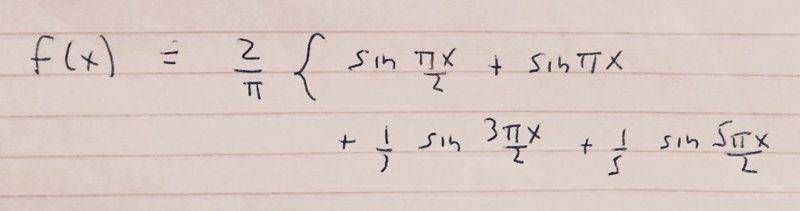 f(x) = 2/π { sin πx/2 + sin πx
+ 1/3 sin 3πx/2 + 1/5 sin 5πx/2